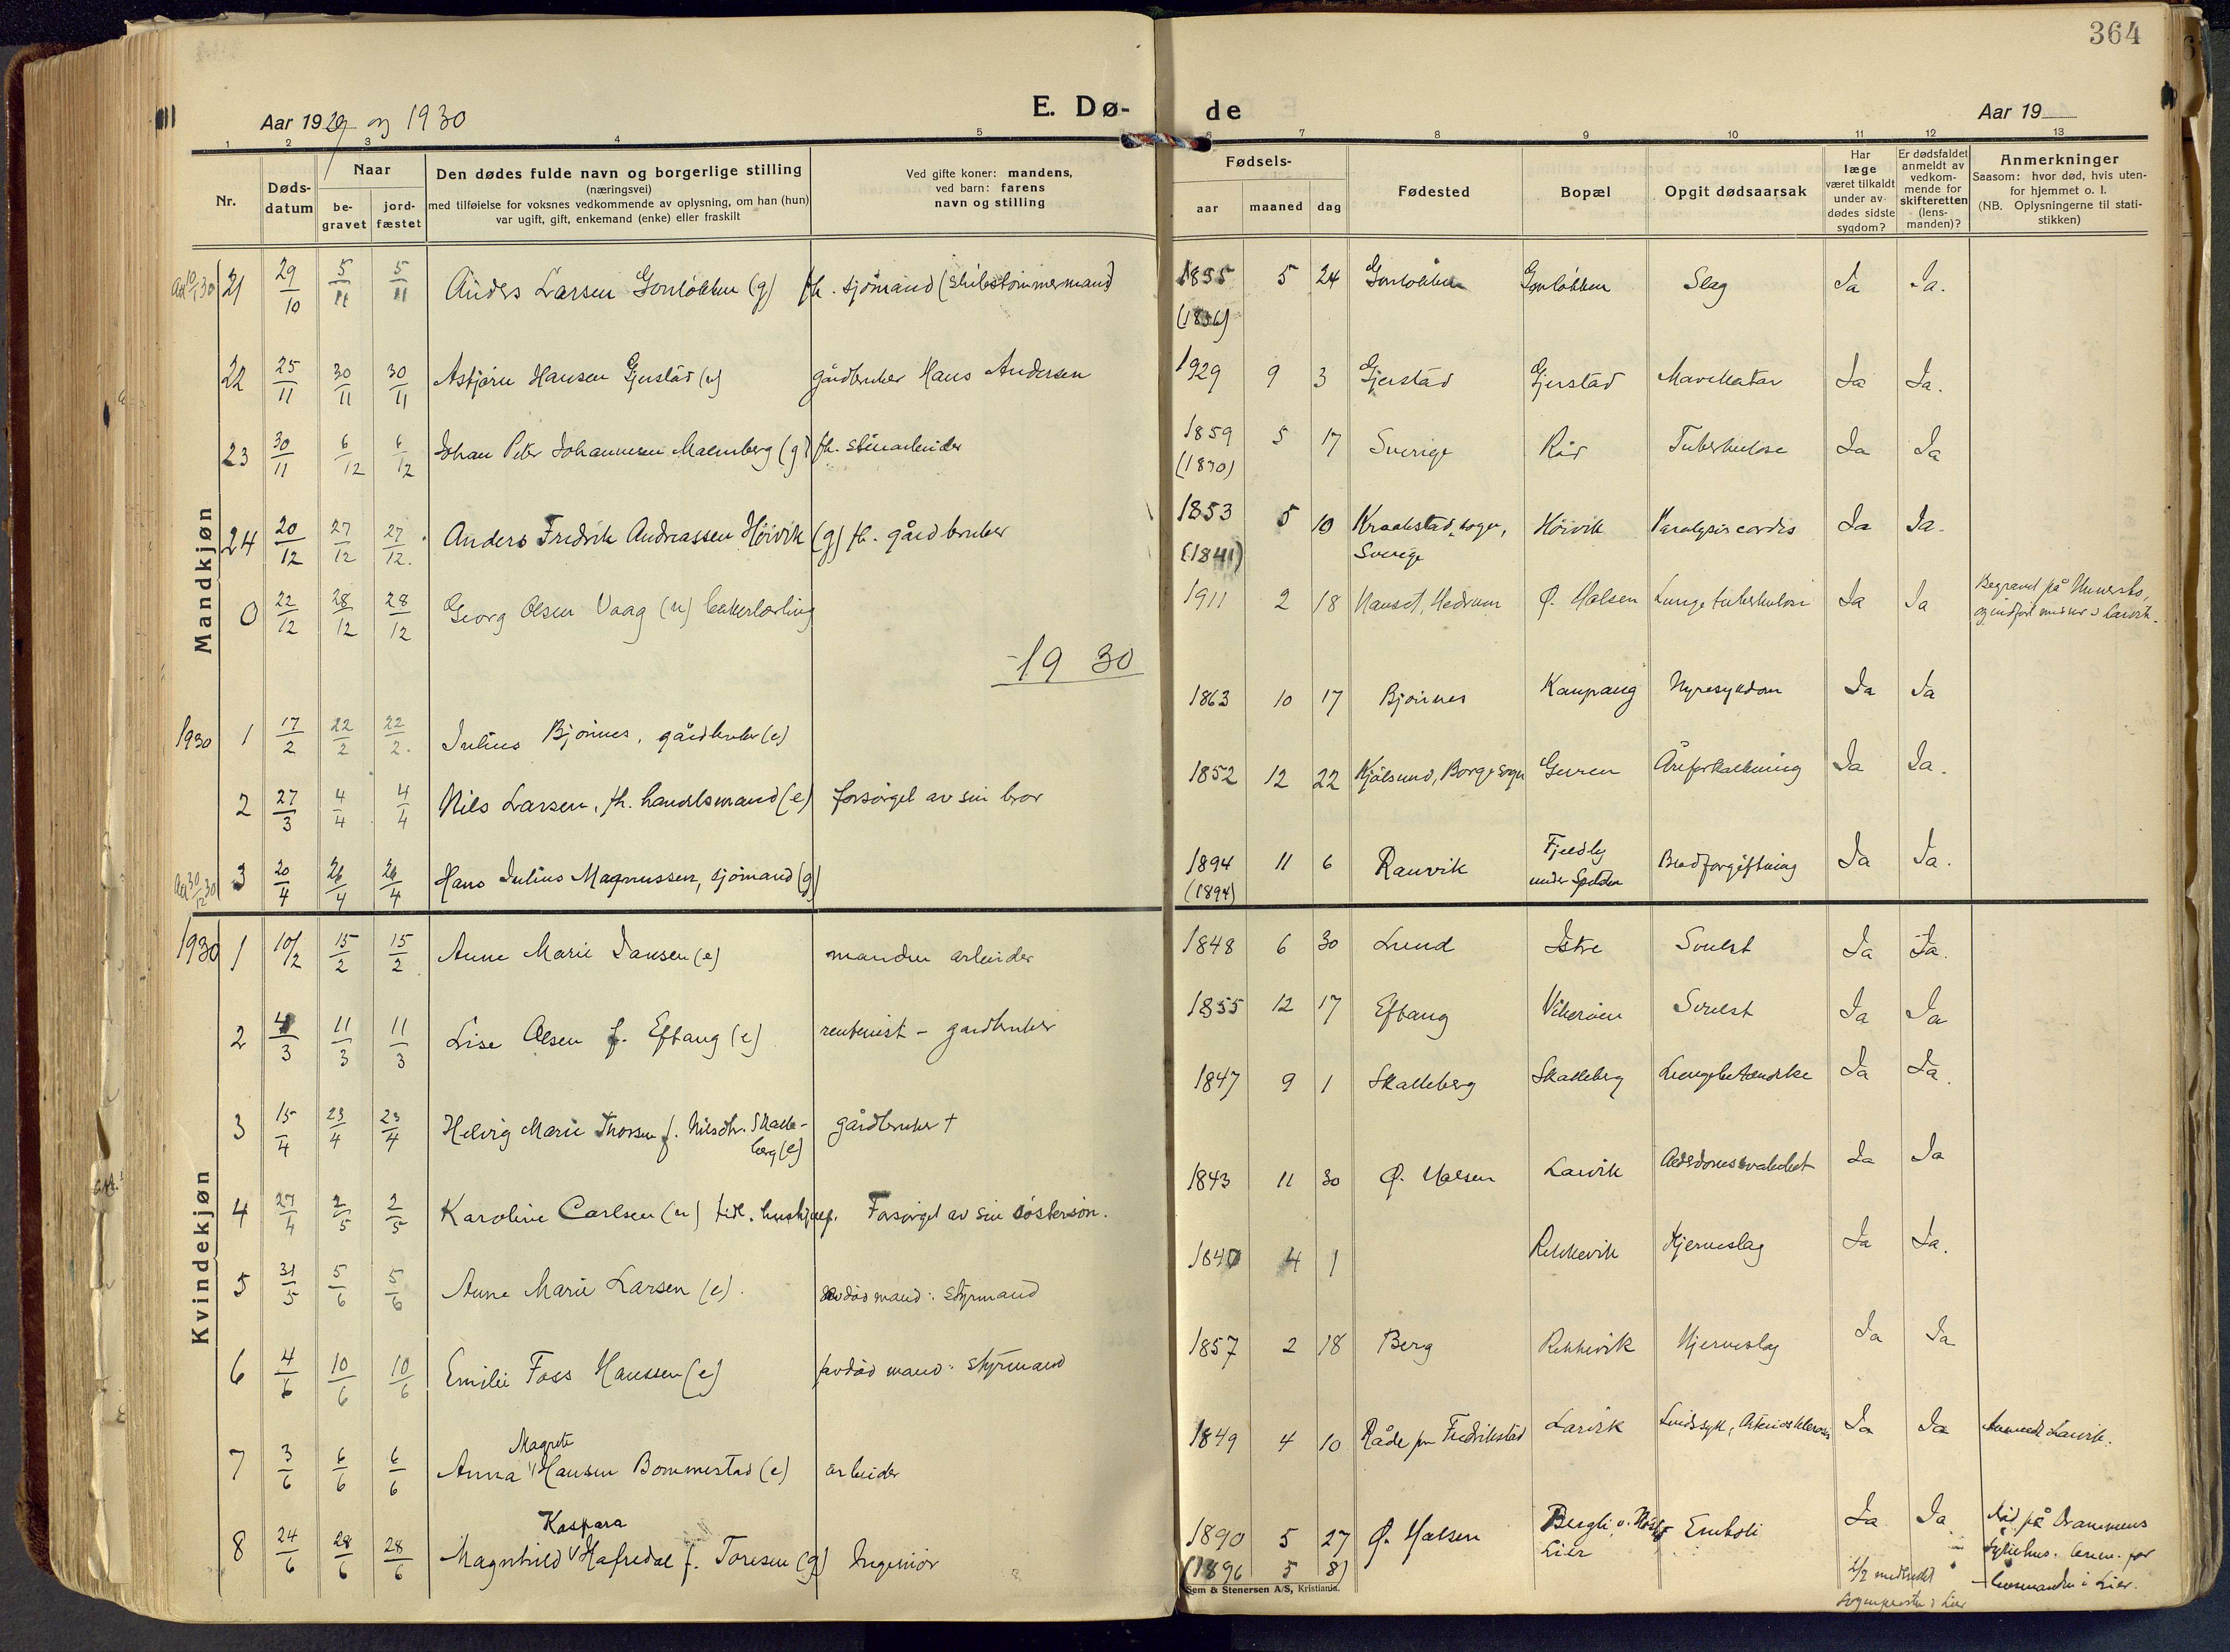 364
Aar 1929 og 1930
E. Dø-
de
Aar 19
1 2 3 4 5 6 7 8 9 10 11 12 13
Nr.
Døds-
datum
Naar
be-
gravet
jord-
fæstet
Den dødes fulde navn og borgerlige stilling
(næringsvei)
med tilføielse for voksnes vedkommende av oplysning, om han (hun)
var ugift, gift, enkemand (enke) eller fraskilt
Ved gifte koner: mandens,
ved barn: farens
navn og stilling
Fødsels-
aar
maaned
dag
Fødested
Bopæl
Opgit dødsaarsak
Har
læge
været tilkaldt
under av-
dødes sidste
sygdom?
Er dødsfaldet
anmeldt av
vedkom-
mende for
skifteretten
(lens-
manden)?
Anmerkninger
Saasom: hvor død, hvis uten-
for hjemmet o. l.
(NB. Oplysningerne til stati-
stikken)
Mandkjøn
21 29/10 5/11 5/11 Anders Larsen Gonløkken (g) fh. sjømand (skibstømmermand) 1855 5 24 Gonløkken Gonløkken Slag Ja Ja.
(1836)
22 25/11 30/11 30/11 Asbjørn Hansen Gjerstad (u) gårdbruker Hans Andersen 1929 9 3 Gjerstad Gjerstad Mavekatar Ja Ja.
23 30/11 6/12 6/12 Johan Peter Johannesen Malmberg (g) fh. stenarbeider 1859 5 17 Sverige Rår Tuberkulose Ja Ja
(1890)
24 20/12 27/12 27/12. Anders Fredrik Andreassen Høivik (g) fh. gårdbruker 1853 5 10 Kraakstad sogn, Høivik Paralysis cordis Ja Ja.
(1841) Sverige
0 22/12 28/12 28/12 Georg Olsen Vaag (u) bakerlærling 1911 2 18 Nanset, Hedrum Ø. Halsen Lungetuberkulose Ja Ja Begravet på
og indført under Larvik.
1930
1930 1 17/2 22/2 22/2. Julius Bjønnes, gårdbruker (e) 1863 10 17 Bjønnes Kaupang Nyresykdom Ja Ja
2 27/3 4/4 4/4 Nils Larsen, fh. handelsmand (e) forsørget av sin bror 1852 12 22 Kjølsund, Borge sogn Guren Åreforkalkning Ja Ja.
3 20/4 26/4 26/4 Hans Julius Magnussen, sjømand (g) 1894 11 6 Rauvik Fjeldly Blodforgiftning Ja Ja.
(1894) under
Kvindekjøn
1930 1 10/2 15/2 15/2 Anne Marie Jansen (e) manden arbeider 1848 6 30 Lund Istre Svulst Ja Ja.
2 4/3 11/3 11/3 Lise Olsen f. Eftang (e) rentenist - gardbruker 1855 12 17 Eftang Vikerøien Svulst Ja Ja
3 15/4 23/4 23/4 Helvig Marie Thorsen f. Nilsdtr. Skalle- gårdbruker † 1847 9 1 Skalleberg Skalleberg Lungebetændelse Ja Ja.
berg (e)
4 27/4 2/5 2/5 Karoline Carlsen (u) tidl. hushjelp. Forsørget av sin søstersøn. 1843 11 30 Ø. Halsen Larvik Alderdomssvakhet Ja Ja
5 31/5 5/6 5/6 Anne Marie Larsen (e). avdød mand: styrmand 1840 4 1 Rekkevik Hjerneslag Ja Ja.
6 4/6 10/6 10/6 Emilie Foss Hanssen (e) avdød mand: styrmand 1857 2 18 Berg Rekkevik Hjerneslag Ja Ja
Magrete
7 3/6 6/6 6/6 Anna Hansen Bommestad (e) arbeider 1849 4 10 Råde pr. Fredrikstad Larvik Sindssyk, Arteriosklerose Ja Ja Anmeldt Larvik.
Kaspara
8 24/6 28/6 28/6 Magnhild Hafredal f. Toresen (g) Ingeniør 1890 5 27 Ø. Halsen Bergli Emboli Ja Ja Død på Drammens
Lier sykehus. Anm. for
(1896 5 8) lensmanden i Lier.
2/7 meddelt
sogneprest i Lier
Sem & Stenersen A/S, Kristiania.